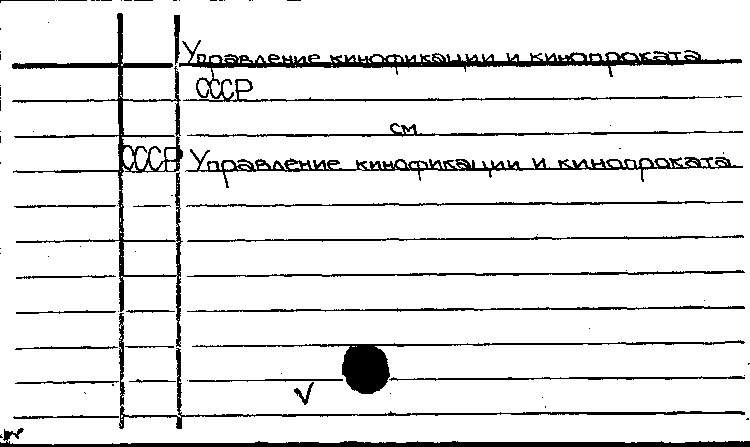 Управление кинофикации и кинопроката
СССР
см
СССР Управление кинофикации и кинопроката